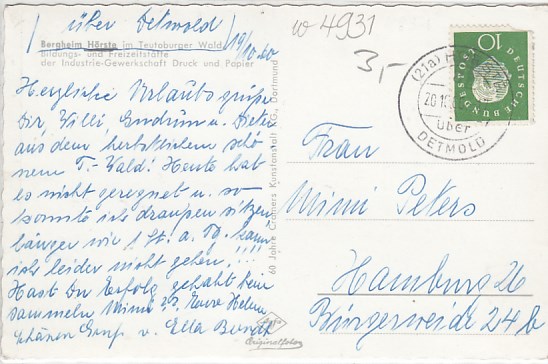 über Detmold
Bergheim Hörste im Teutoburger Wald
Bildungs- und Freizeitstätte
der Industrie-Gewerkschaft Druck und Papier
Herzliche Urlaubsgrüße
Dir, Willi, u. Dieter
aus dem herbstlichen schö
nem T.-Wald! Heute hat
es nicht geregnet u. so
konnte ich draußen sitzen
länger wie 1 St. a. Tg. kann
ich leider nicht gehen!!!
Hast Du Erfolg gehabt beim
sammeln Mimi??
schönen Gruß v. Ella
60 Jahre Cramers Kunstanstalt KG., Dortmund
Originalfoto
w 4931
3,-
(21a)
20.10.
über
DETMOLD
10
DEUTSCHE BUNDESPOST
Frau
Mimi Peters
Hamburg 26
Bürgerweide 24b